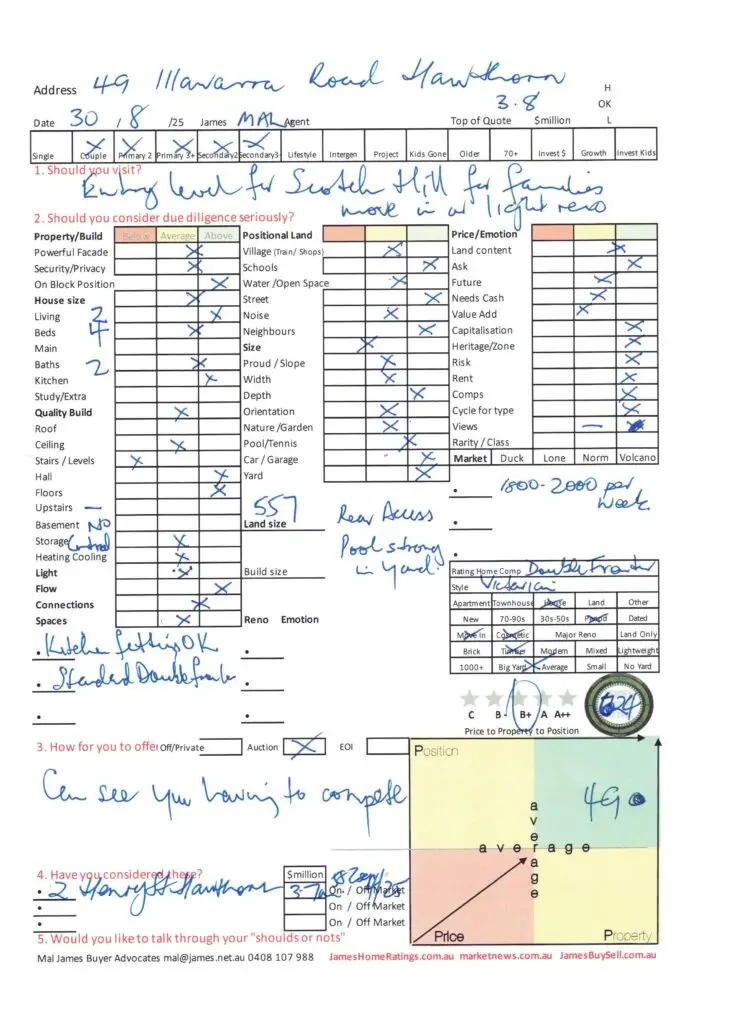 Address 49 Illawarra Road Hawthorn
H
3.8 OK
Date 30 / 8 /25 James MAL Agent Top of Quote $million L
Single Couple Primary 2 Primary 3+ Secondary2 Secondary3 Lifestyle Intergen Project Kids Gone Older 70+ Invest $ Growth Invest Kids
1. Should you visit?
Entry level for Scotch Hill for families
move in or light reno
2. Should you consider due diligence seriously?
Property/Build Below Average Above Positional Land Price/Emotion
Powerful Facade Village (Train/ Shops) Land content
Security/Privacy Schools Ask
On Block Position Water /Open Space Future
House size Street Needs Cash
Living 2 Noise Value Add
Beds 4 Neighbours Capitalisation
Main Size Heritage/Zone
Baths 2 Proud / Slope Risk
Kitchen Width Rent
Study/Extra Depth Comps
Quality Build Orientation Cycle for type
Roof Nature /Garden Views —
Ceiling Pool/Tennis Rarity / Class
Stairs / Levels Car / Garage Market Duck Lone Norm Volcano
Hall Yard
Floors 1800-2000 per week
Upstairs — 557 Rear Access
Basement NO Land size
Storage Central Pool strong
Heating Cooling in yard.
Light Build size Rating Home Comp Double Fronter
Flow Style Victorian
Connections Apartment Townhouse House Land Other
Spaces Reno Emotion New 70-90s 30s-50s Period Dated
Kitchen fittings OK Move In Cosmetic Major Reno Land Only
Brick Timber Modern Mixed Lightweight
Standard Double 1000+ Big Yard Average Small No Yard
C B - B+ A A++
624
Price to Property to Position
3. How for you to offer Off/Private Auction EOI
Position
Can see you having to compete
49
average
average
4. Have you considered these? $million
2 Henry St Hawthorn On / Off Market
On / Off Market
On / Off Market
Price Property
5. Would you like to talk through your "shoulds or nots"
Mal James Buyer Advocates mal@james.net.au 0408 107 988 JamesHomeRatings.com.au marketnews.com.au JamesBuySell.com.au